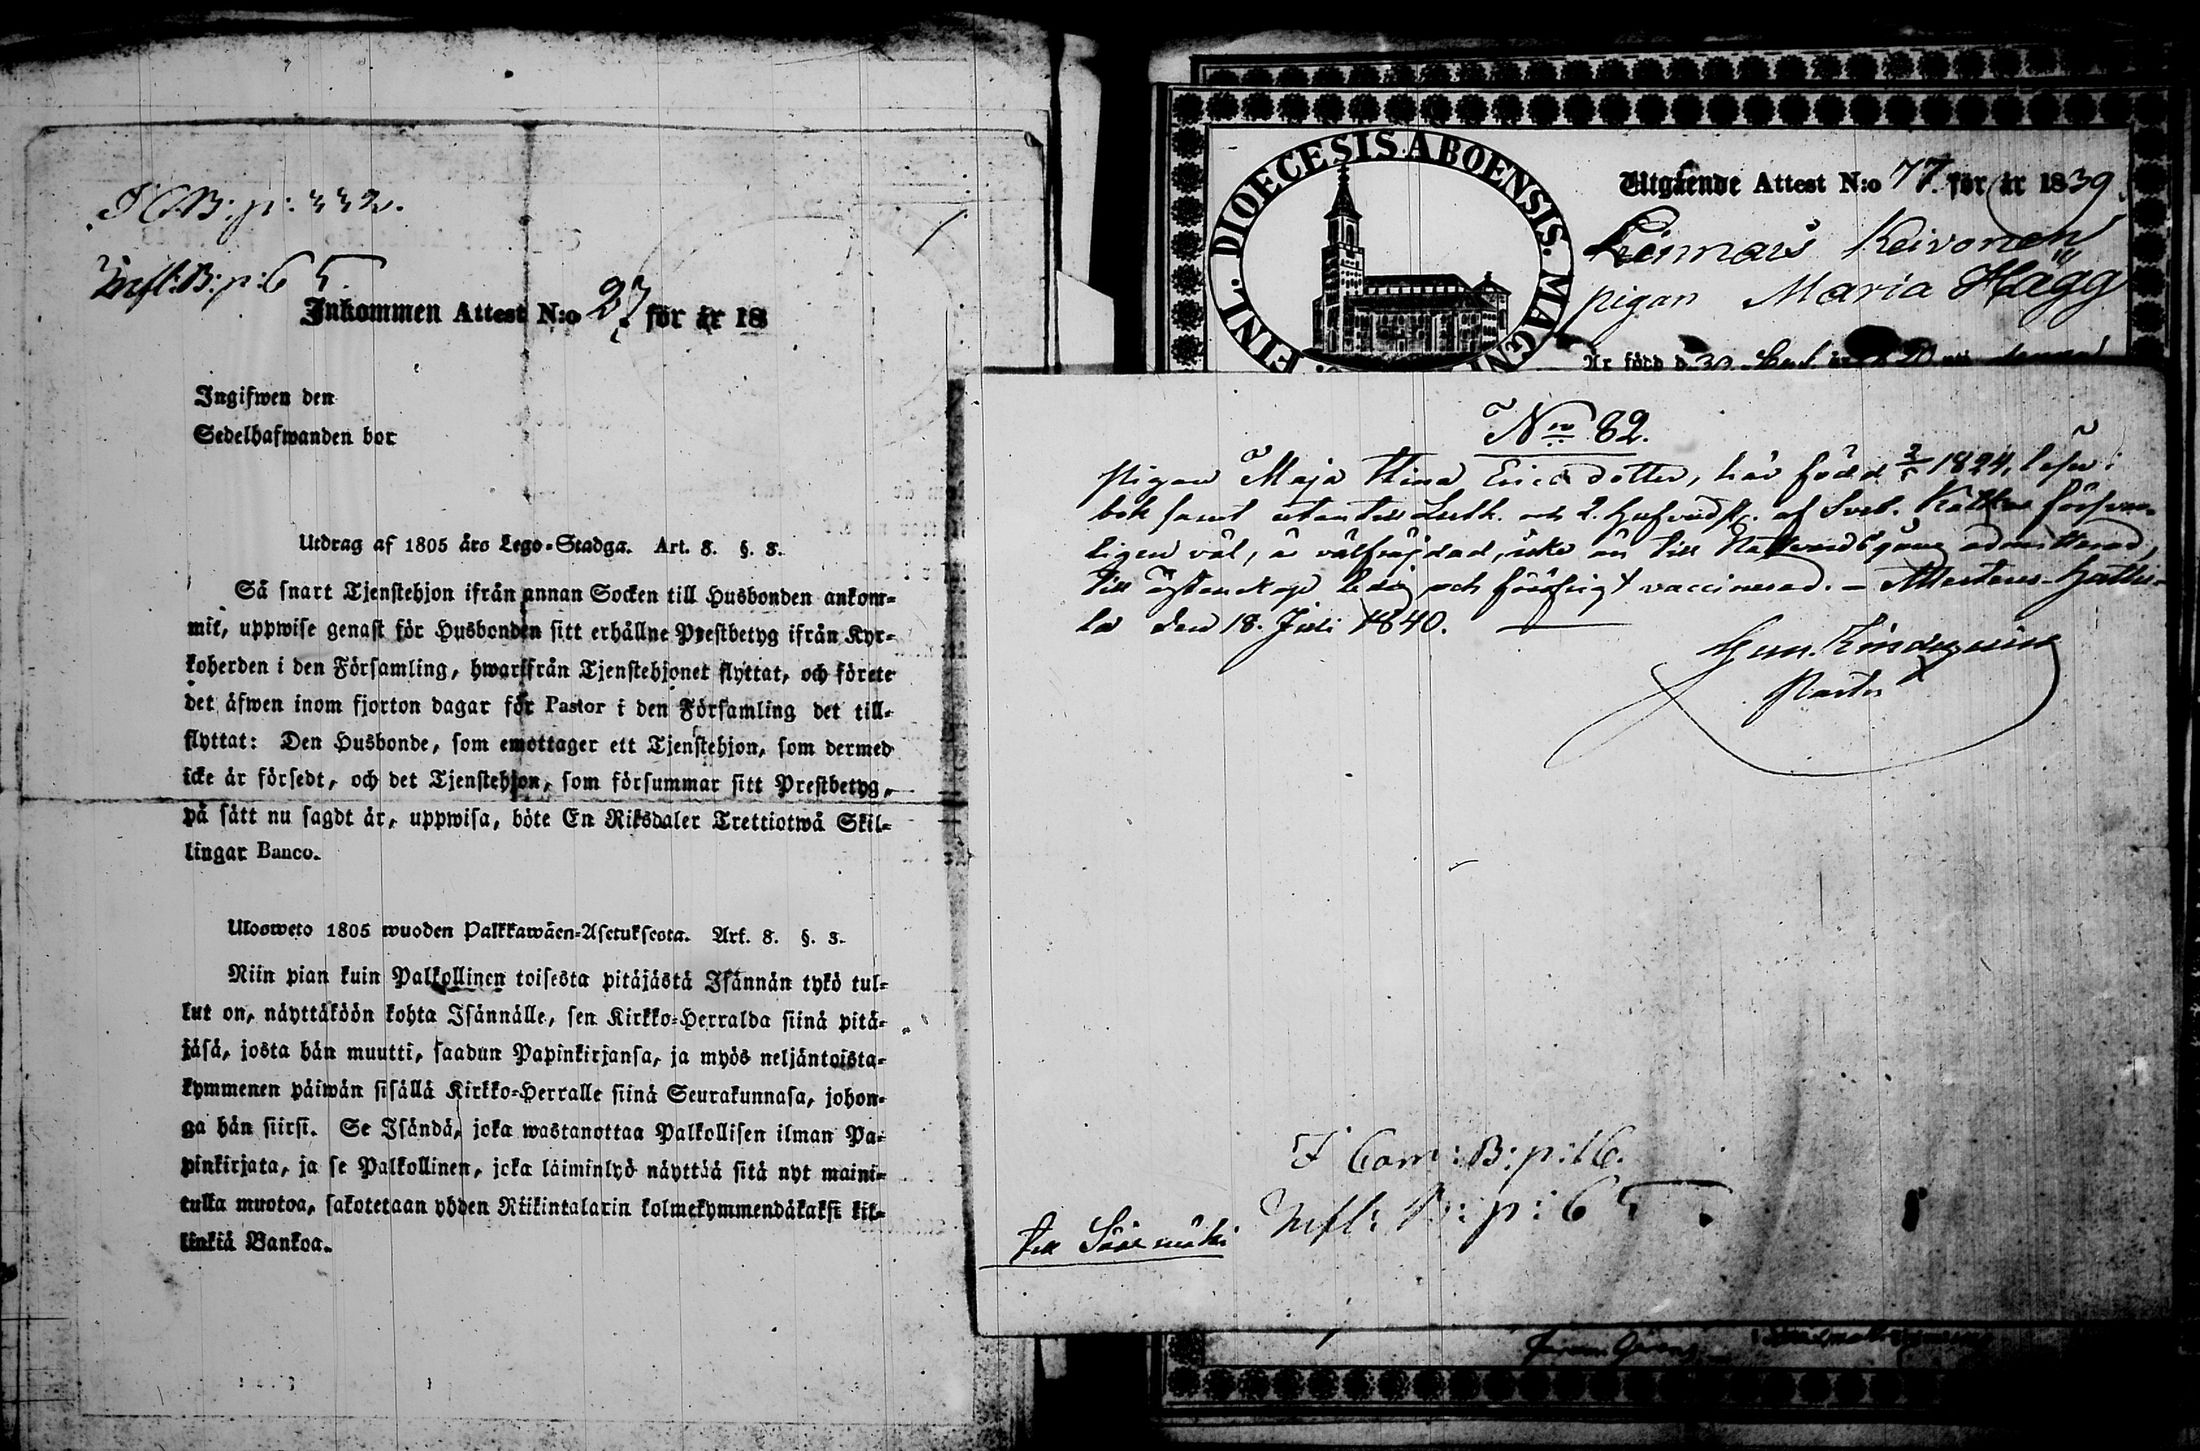 I C.B: p: 332.
Infl:B: p: 65.
Inkommen Attest N:o 27. för år 18
Ingifwen den
Sedelhafwanden bor
Utdrag af 1805 års Lego-Stadga. Art. 8. §. 3.
Så snart Tjenstehjon ifrån annan Socken till Husbonden ankom-
mit, uppwise genast för Husbonden sitt erhållne Prestbetyg ifrån Kyr-
koherden i den Församling, hwarifrån Tjenstehjonet flyttat, och förete
det äfwen inom fjorton dagar för Pastor i den Församling det till-
flyttat: Den Husbonde, som emottager ett Tjenstehjon, som dermed
icke är försedt, och det Tjenstehjon, som försummar sitt Prestbetyg,
på sätt nu sagdt är, uppwisa, böte En Riksdaler Trettiotwå Skil-
lingar Banco.
Ulosweto 1805 wuoden Palkkawäen-Asetuksesta. Art. 8. §. 3.
Niin pian kuin Palkollinen toisesta pitäjästä Isännän tykö tul-
lut on, näyttäköön kohta Isännälle, sen Kirkko-Herralda siinä pitä-
jäsä, josta hän muutti, saadun Papinkirjansa, ja myös neljäntoista-
kymmenen päiwän sisällä Kirkko-Herralle siinä Seurakunnasa, johon-
ga hän siirsi. Se Isändä, joka wastanottaa Palkollisen ilman Pa-
pinkirjata, ja se Palkollinen, joka laiminlyö näyttää sitä nyt maini-
tulla muotoa, sakotetaan yhden Riikintalarin kolmekymmendäkaksi kil-
linkiä Bankoa.
FINL. DIOECESIS ABOENSIS. MAGN
Utgående Attest N:o 77. för år 1839.
Keivonen
pigan Maria Hägg
Är född d. 30
No 82.
Pigan Maja Stina Ericsdotter, här född 2/5 1824, läser i
bok samt utantill Luth. och 2. hufvudst. af Sveb. Katekes försvar-
ligen väl, är välfräjdad, icke än till Nattvardsgång admitterad,
till ägtenskap ledig och förösrigt vaccinerad. –
la den 18. Juli 1840.
Pastor
I Com: B: p: 16.
Infl: B: p: 65.
till Säärmäki